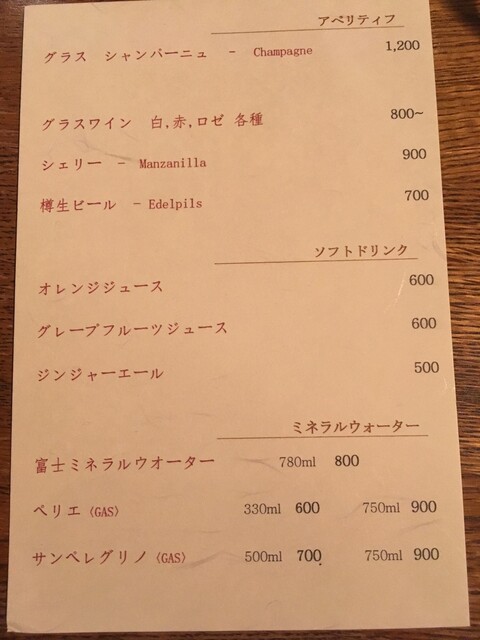 アペリティフ
グラス シャンパーニュ - Champagne 1,200
グラスワイン 白,赤,ロゼ 各種 800~
シェリー - Manzanilla 900
樽生ビール - Edelpils 700
ソフトドリンク
オレンジジュース 600
グレープフルーツジュース 600
ジンジャーエール 500
ミネラルウォーター
富士ミネラルウオーター 780ml 800
ペリエ〈GAS〉 330ml 600 750ml 900
サンペレグリノ〈GAS〉 500ml 700 750ml 900